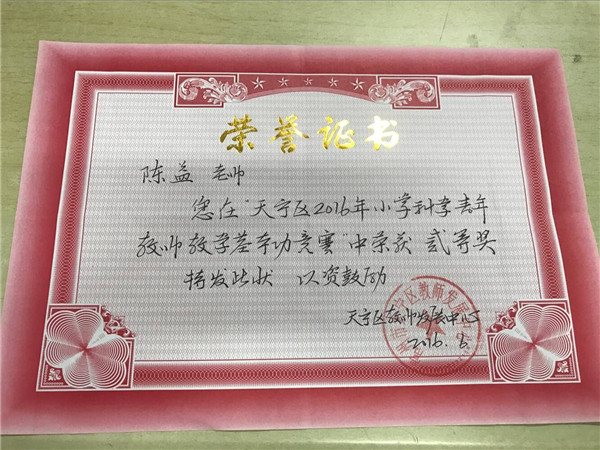 荣誉证书
陈益 老师
您在“天宁区2016年小学科学青年
教师教学基本功竞赛”中荣获 贰等奖
特发此状 以资鼓励
天宁区教师发展中心
2016.6